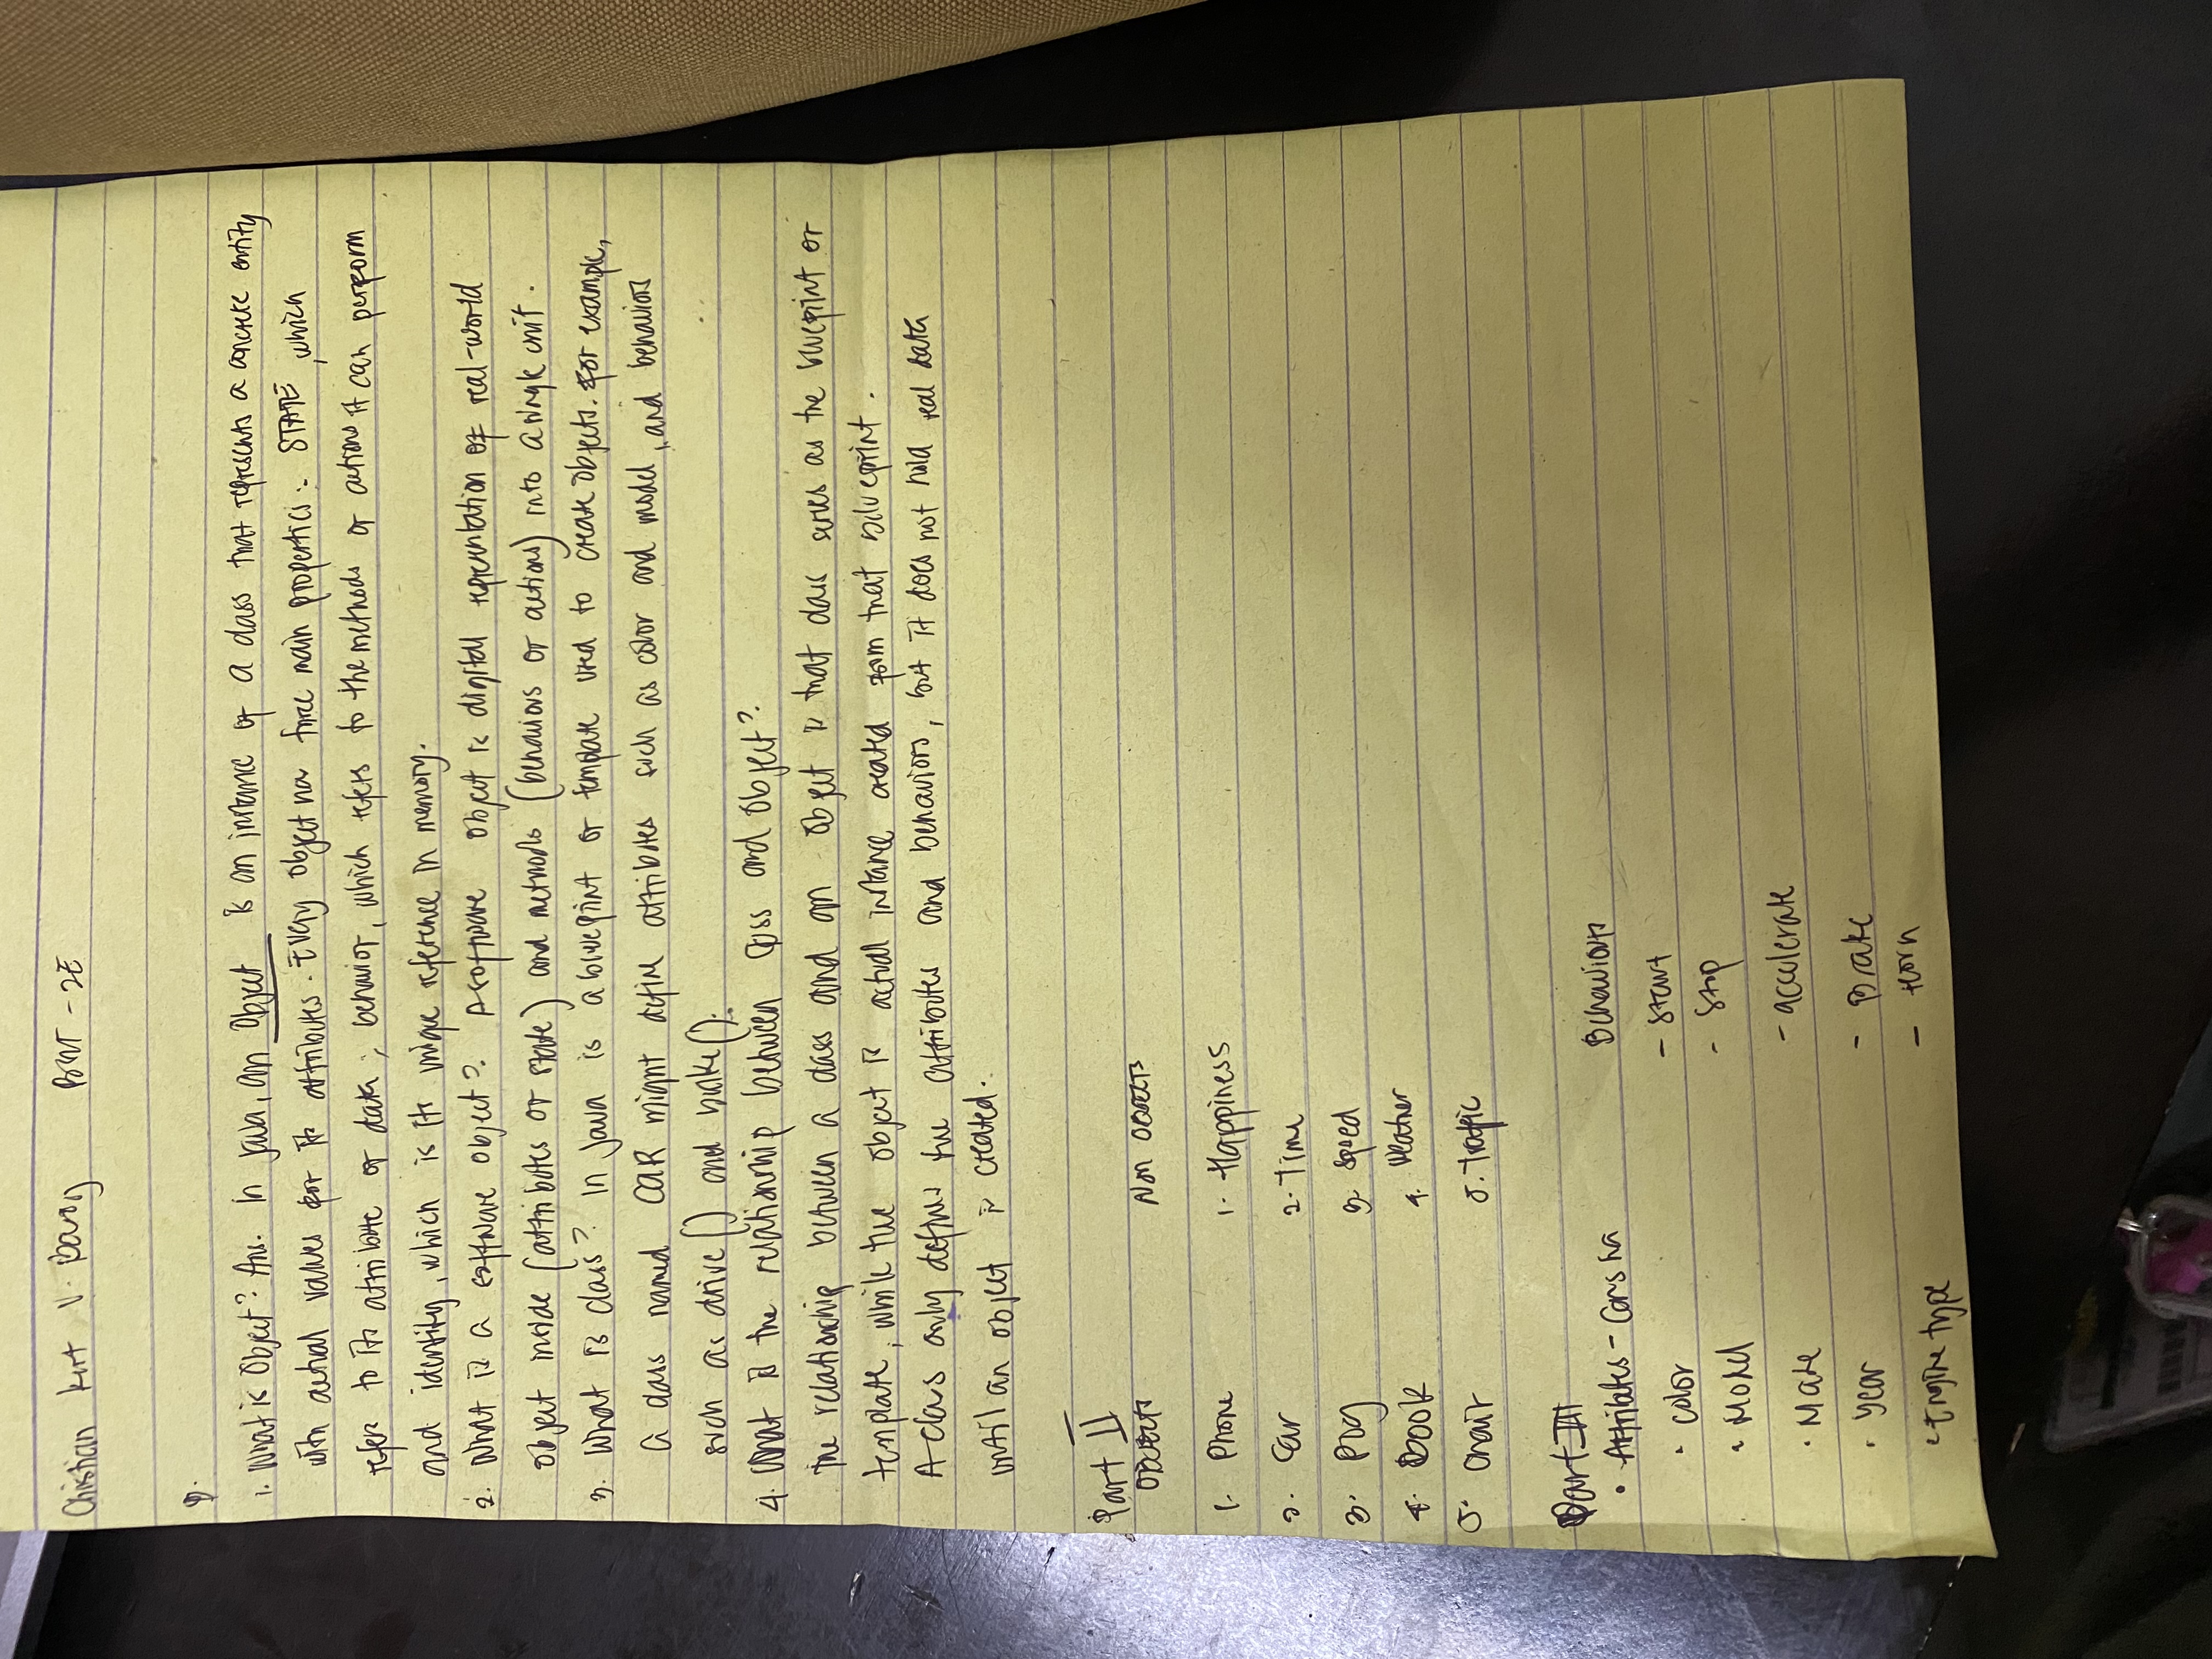 Christian Kurt V. 2E
I.
1. What is Object? Ans. In Java, an Object is an instance of a class that represents a concrete entity
with actual values for its attributes. Every object has three main properties: STATE, which
refers to its attribute or data; behavior, which refers to the methods or actions it can perform
and identity, which is its unique reference in memory.
2. What is a software object? A software object is digital representation of real-world
object inside (attributes or state) and methods (behaviors or actions) into a single unit.
3. What is class? In Java is a blueprint or template used to create objects. For example,
a class named CAR might define attributes such as color and model, and behaviors
such as drive() and brake().
4. What is the relationship between class and object?
The relationship between a class and an object is that class serves as the blueprint or
template, while the object is actual instance created from that blueprint.
A class only defines the attributes and behaviors, but it does not hold real data
until an object is created.
Part II
OBJECTS Non OBJECTS
1. Phone 1. Happiness
2. Car 2. Time
3. Dog 3. Speed
4. Book 4. Weather
5. Chair 5. Traffic
Part III
• Attributes - Behaviors
• Color - Start
• Model - Stop
• Make - accelerate
• Year - Brake
• Engine type - Horn